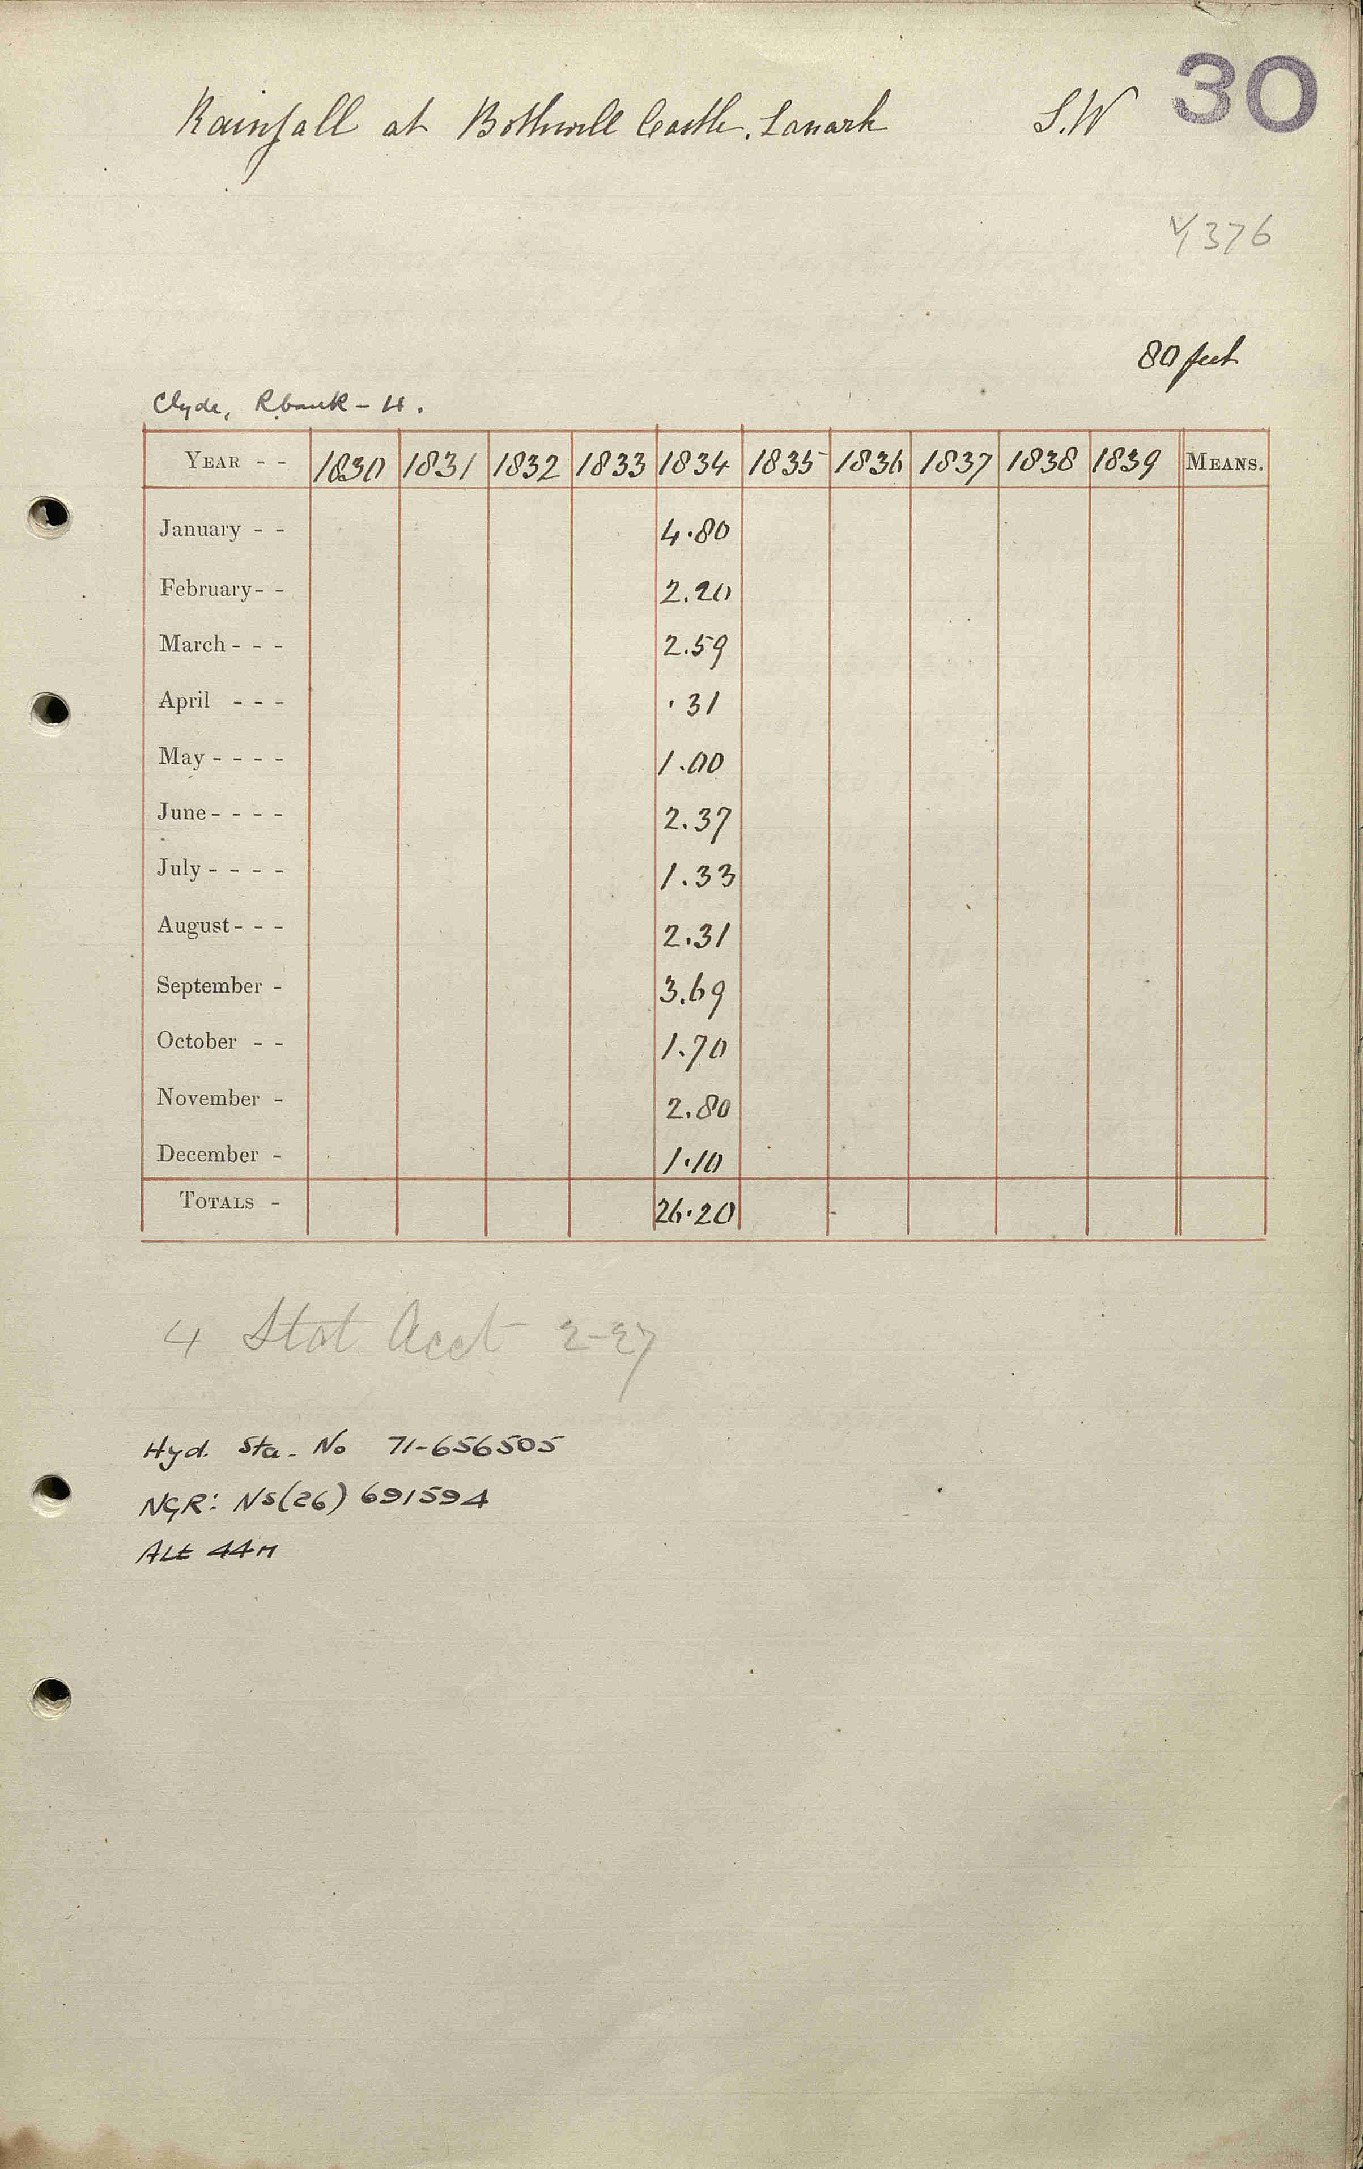 Rainfall at Bothwell Castle, Lanark S.W 30
√ 376
80 feet
Clyde, R.bank - H.
YEAR - - 1830 1831 1832 1833 1834 1835 1836 1837 1838 1839 MEANS.
January - - 4.80
February - - 2.20
March - - - 2.59
April - - - .31
May - - - - 1.00
June - - - - 2.37
July - - - - 1.33
August - - - 2.31
September - 3.69
October - - 1.70
November - 2.80
December - 1.10
TOTALS - 26.20
4 Stat Acct 2-27
Hyd. Sta. No 71-656505
NGR: NS(26) 691594
Alt 44M